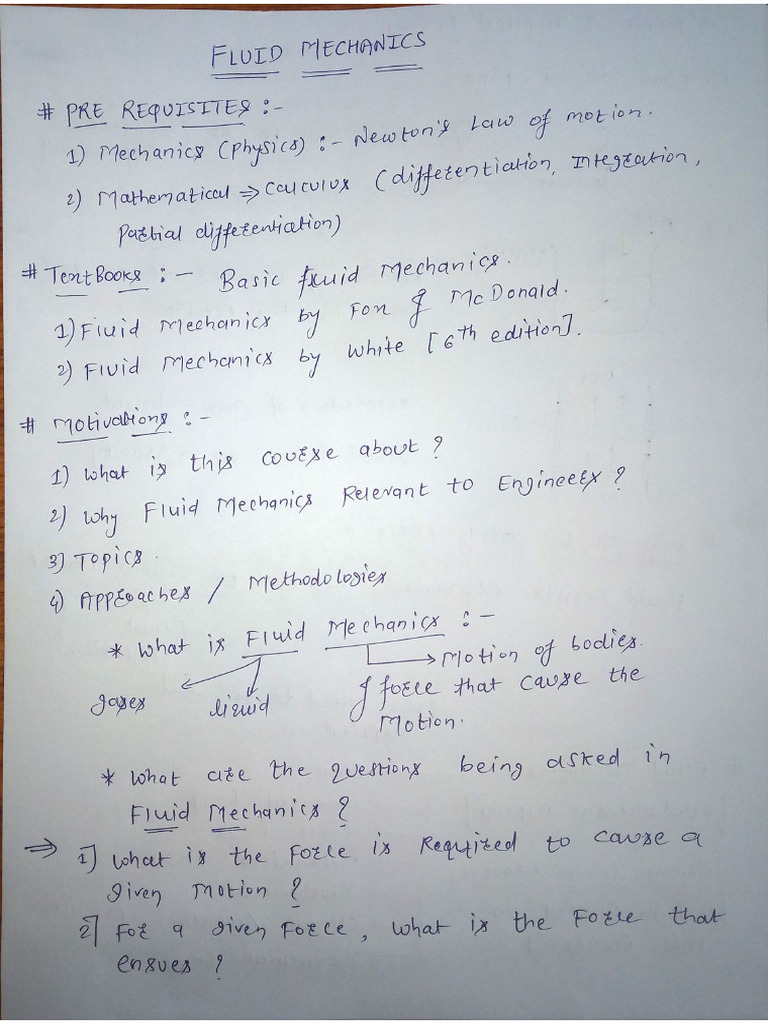 FLUID MECHANICS
# PRE REQUISITES :-
1) Mechanics (Physics) :- Newton's Law of motion.
2) Mathematical ⇒ Calculus (differentiation, Integration,
Partial differentiation)
# TextBooks :- Basic fluid Mechanics.
1) Fluid Mechanics by Fox & McDonald.
2) Fluid Mechanics by White [6th edition].
# Motivations :-
1) What is this course about ?
2) Why Fluid Mechanics Relevant to Engineers ?
3) Topics.
4) Approaches / Methodologies
* What is Fluid Mechanics :-
gases liquid → Motion of bodies.
& force that cause the
Motion.
* What are the Questions being asked in
Fluid Mechanics ?
⇒ 1] What is the Force is Required to cause a
given Motion ?
2] For a given Force, what is the Force that
ensues ?